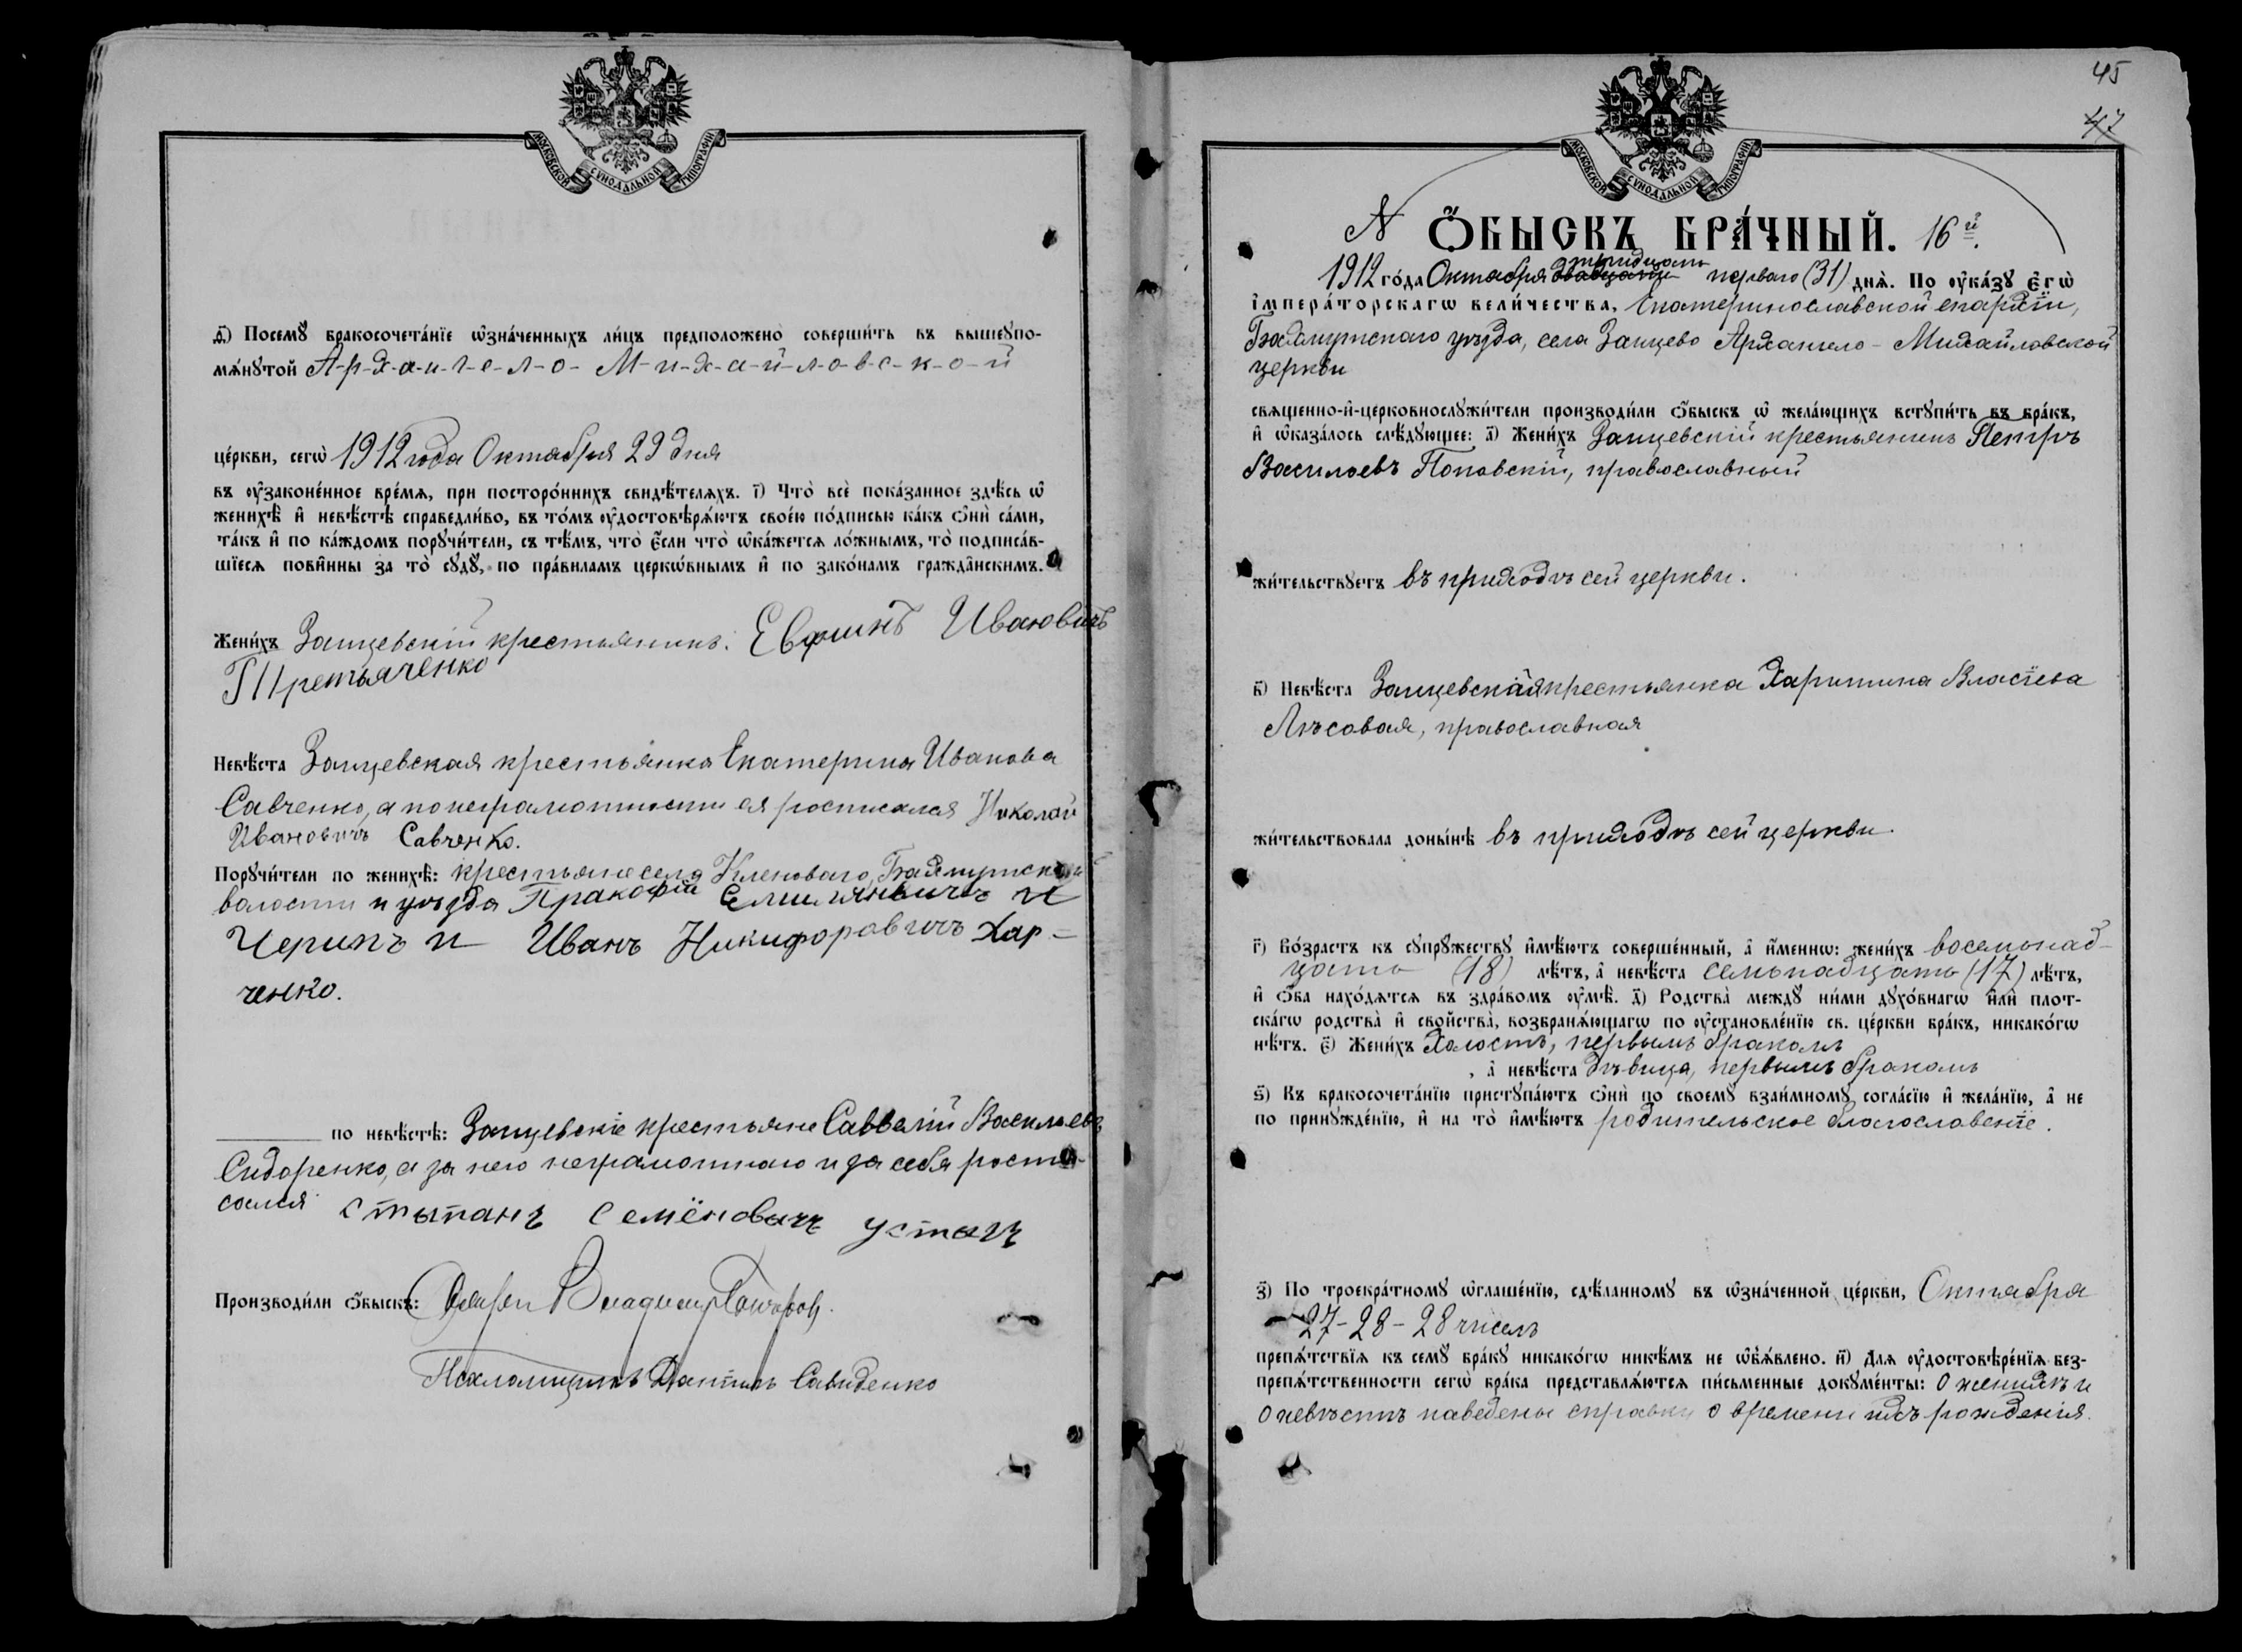 МОСКОВСКОЙ СѴНОДАЛЬНОЙ ТИПОГРАФІИ
ѳ҃) Посемꙋ̀ бракосочета́нїе ѡ҆зна́ченныхъ ли́цъ предположено̀ соверши́ть въ вышеꙋпо-
мѧ́нꙋтой А-р-х-а-н-г-е-л-о- М-и-х-а-й-л-о-в-с-к-о-й
це́ркви, сегѡ̀ 1912 года Октября 29 дня
въ ᲂу҆законе́нное вре́мѧ, при посторо́ннихъ свидѣ́телѧхъ. і҃) Что̀ всѐ пока́занное здѣ́сь ѡ҆
женихѣ̀ и҆ невѣ́стѣ справедли́во, въ то́мъ ᲂу҆достовѣрѧ́ютъ свое́ю по́дписью ка́къ ѻ҆нѝ са́ми,
та́къ и҆ по ка́ждомъ порꙋчи́тели, съ тѣ́мъ, что̀ є҆́сли что̀ ѡ҆ка́жетсѧ ло́жнымъ, то̀ подписа́в-
шїесѧ пови́нны за то̀ сꙋдꙋ̀, по пра́виламъ церкѡ́внымъ и҆ по зако́намъ гражда̂нскимъ.
Жени́хъ Зайцевскій крестьянинъ: Евфимъ Ивановичъ
Третьяченко
Невѣ́ста Зайцевская крестьянка Екатерина Иванова
Савченко, а по неграмотности ея росписался Николай
Ивановичъ Савченко.
Порꙋчи́тели по женихѣ̀: крестьяне села Кленоваго, Бахмутской
волости и уѣзда Пракофій Емилияновичъ
Черипъ и Иванъ Никифоровичъ Хар-
ченко.
по невѣ́стѣ: Зайцевскіе крестьяне Савелій Васильевъ
Сидоренко, а за него неграмотнаго и за себя роспи-
сался Стыпанъ Семёновичъ Устычъ
Производи́ли ѻ҆́быскъ: Владимиръ
Псаломщикъ Савиденко
45
47
МОСКОВСКОЙ СѴНОДАЛЬНОЙ ТИПОГРАФІИ
N Ѻ҆́БЫСКЪ БРА́ЧНЫЙ. 16й.
тридцать
1912 го́да Октября двадцать перваго (31) днѧ̀. По ᲂу҆ка́зꙋ Є҆гѡ̀
І҆мпера́торскагѡ вели́чества, Екатеринославской епархіи,
Бахмутскаго уѣзда, села Зайцево Архангело-Михайловской
церкви
свѧще́нно-и҆-церковнослꙋжи́тели производи́ли ѻ҆́быскъ ѡ҆ жела́ющихъ встꙋпи́ть въ бра́къ,
и҆ ѡ҆каза́лось слѣ́дꙋющее: а҃) Жени́хъ Зайцевскій крестьянинъ Петръ
Васильевъ Поповскій, православный
жи́тельствꙋетъ въ приходѣ сей церкви.
в҃) Невѣ́ста Зайцевская крестьянка Харитина Власіева
Лѣсовая, православная
жи́тельствовала доны́нѣ въ приходѣ сей церкви.
г҃) Во́зрастъ къ сꙋпрꙋ́жествꙋ и҆мѣ́ютъ соверше́нный, а҆ и҆́менно: жени́хъ восемьнад-
цать (18) лѣ́тъ, а҆ невѣ́ста семьнадцать (17) лѣ́тъ,
и҆ ѻ҆́ба нахо́дѧтсѧ въ здра́вомъ ᲂу҆мѣ̀. д҃) Родства̀ междꙋ̀ ни́ми дꙋхо́внагѡ и҆лѝ плот-
ска́гѡ родства̀ и҆ свойства̀, возбранѧ́ющагѡ по ᲂу҆становле́нїю св. це́ркви бра́къ, никако́гѡ
нѣ́тъ. є҃) Жени́хъ Холостъ, первымъ бракомъ
, а҆ невѣ́ста дѣвица, первымъ бракомъ
ѕ҃) Къ бракосочета́нїю пристꙋпа́ютъ ѻ҆нѝ по своемꙋ̀ взаи́мномꙋ согла́сїю и҆ жела́нїю, а҆ не
по принꙋжде́нїю, и҆ на то̀ и҆мѣ́ютъ родительское благословеніе.
з҃) По троекра́тномꙋ ѡ҆глаше́нїю, сдѣ́ланномꙋ въ ѡ҆зна́ченной це́ркви, Октября
27-28-28 чиселъ
препѧ́тствїѧ къ семꙋ̀ бра́кꙋ никако́гѡ никѣ́мъ не ѡ҆б̾ѧ́влено. и҃) Длѧ ᲂу҆достовѣре́нїѧ без-
препѧ́тственности сегѡ̀ бра́ка представлѧ́ютсѧ пи́сьменные докꙋме́нты: о женихѣ и
о невѣстѣ наведены справки о времени ихъ рожденія.